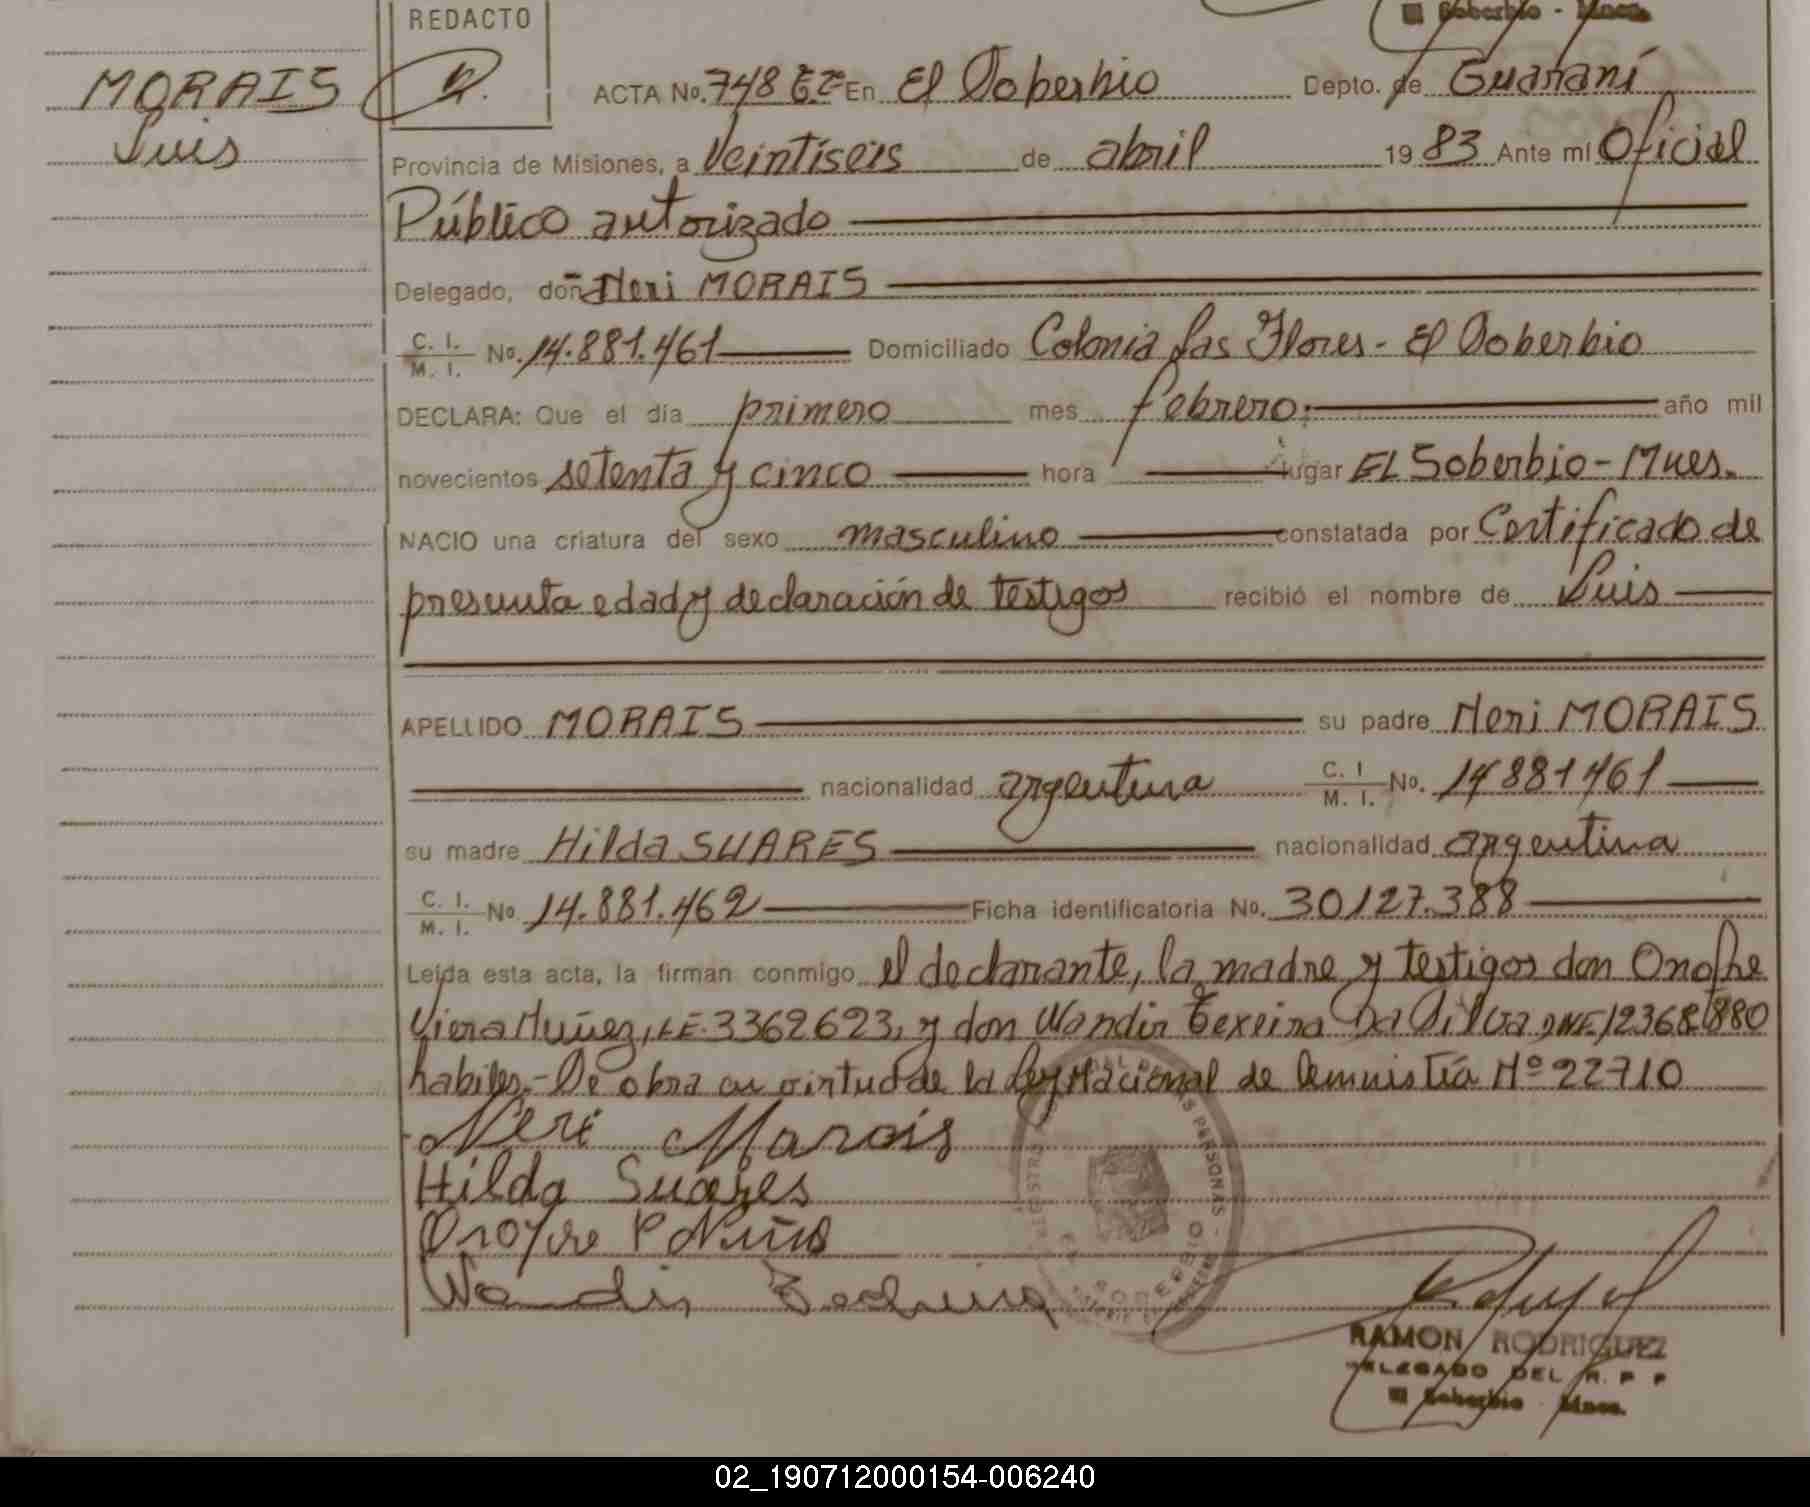 REDACTO
El Soberbio - Mnes.
MORAIS
Luis
ACTA No. 748 En El Soberbio Depto. de Guaraní
Provincia de Misiones, a Veintiseis de abril 1983 Ante mí Oficial
Público autorizado
Delegado, don Neri MORAIS
C. I. M. I. No. 14.881.461 Domiciliado Colonia Las Flores - El Soberbio
DECLARA: Que el día primero mes febrero: año mil
novecientos setenta y cinco hora lugar EL Soberbio - Mnes.
NACIO una criatura del sexo masculino constatada por Certificado de
presunta edad y declaración de testigos recibió el nombre de Luis
APELLIDO MORAIS su padre Neri MORAIS
nacionalidad argentina C. I M. I. No. 14881461
su madre Hilda SUARES nacionalidad argentina
C. I. M. I. No 14.881.462 Ficha identificatoria No. 30127.388
Leída esta acta, la firman conmigo el declarante, la madre y testigos don Onofre
Viera Nuñez, LE. 3362623, y don Wandir Texeira Da Silva, DNI 12368880
habiles.- De obra en virtud de la Ley Nacional de Amnistía Nº 22710
Neri Morais
Hilda Suares
Wandir
RAMON RODRIGUEZ
DELEGADO DEL R. P P
El Soberbio - Mnes.
02_190712000154-006240